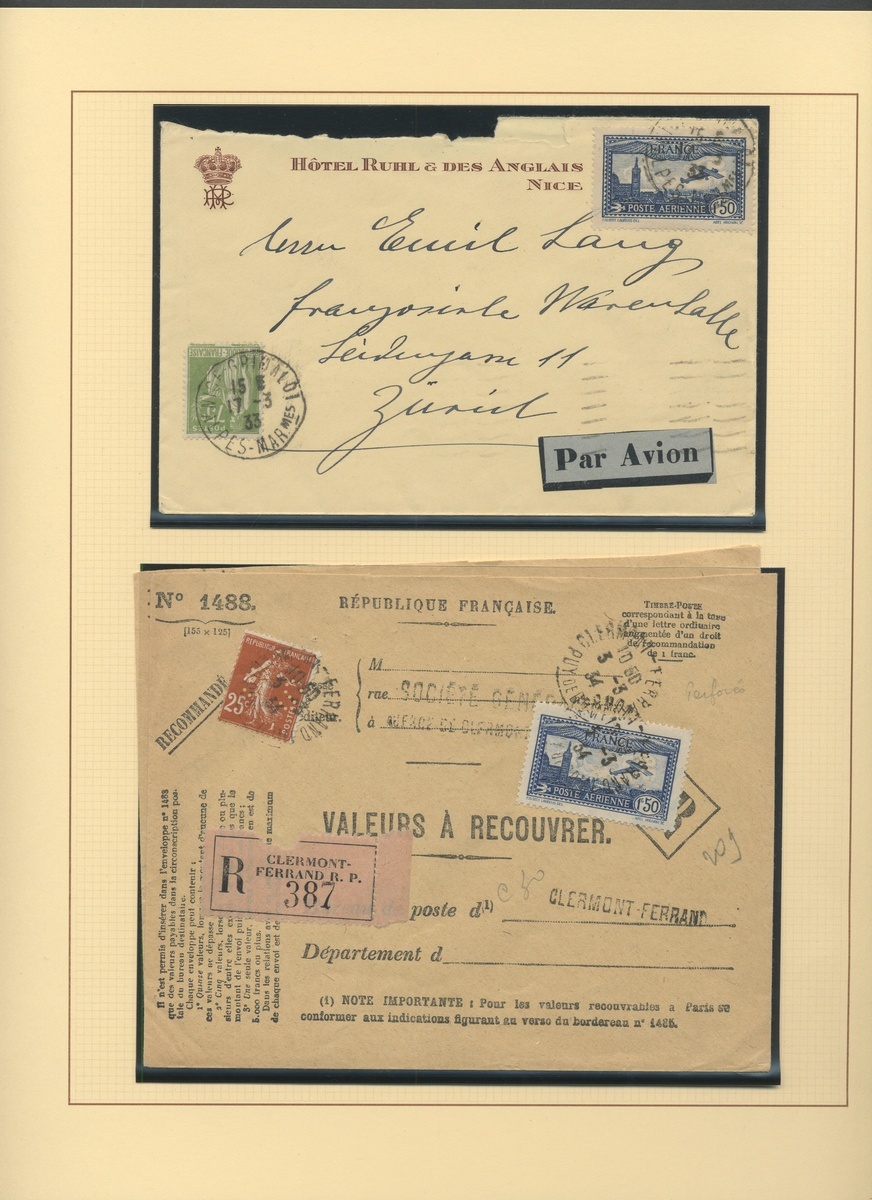 HÔTEL RUHL & DES ANGLAIS
NICE
FRANCE
POSTE AÉRIENNE 1F50
Herrn Emil Lang
französische Warenhalle
Seidengasse 11
Zürich
15
17 -3
33
PES-MAR MES
POSTES
Par Avion
No 1488.
[155 × 125]
RÉPUBLIQUE FRANÇAISE.
TIMBRE-POSTE
correspondant à la taxe
d'une lettre ordinaire
augmentée d'un droit
de recommandation
de 1 franc.
RECOMMANDÉ
25c
M
rue SOCIÉTÉ GÉNÉ
à AGENCE DE CLERMONT
Perforés
CLERMONT-FERRAND
PUY DE
FRANCE
POSTE AÉRIENNE 1F50
R
VALEURS À RECOUVRER.
R
CLERMONT-
FERRAND R. P.
387
de poste d(1) CLERMONT-FERRAND
Département d
(1) NOTE IMPORTANTE : Pour les valeurs recouvrables à Paris se
conformer aux indications figurant au verso du bordereau n° 1485.
Il n'est permis d'insérer dans l'enveloppe n° 1488
que des valeurs payables dans la circonscription pos-
tale du bureau destinataire.
Chaque enveloppe peut contenir :
1° Quinze valeurs, lors
ces valeurs ne dépasse
2° Cinq valeurs, lors
sieurs d'entre elles ex
montant de l'envoi puis
3° Une seule valeur,
5.000 francs ou plus.
Dans les relations av
de chaque envoi est de